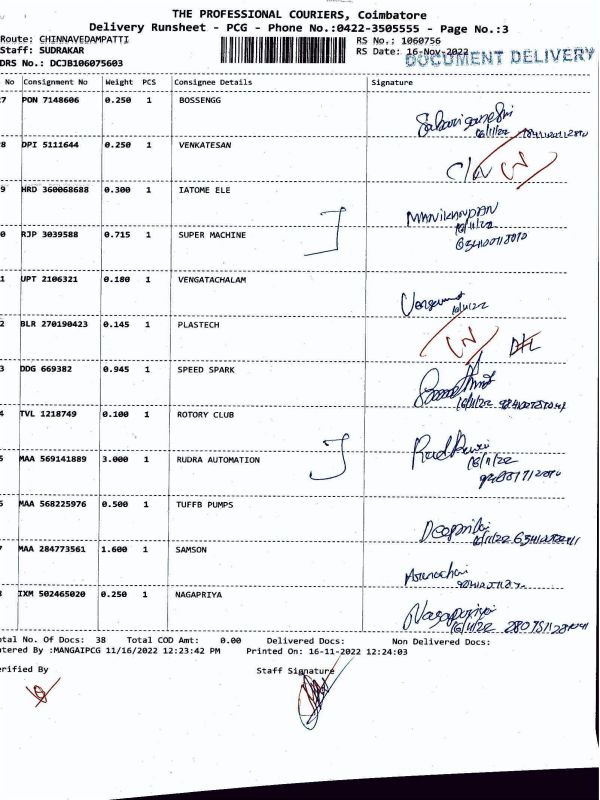 THE PROFESSIONAL COURIERS, Coimbatore
Delivery Runsheet - PCG - Phone No.:0422-3505555 - Page No.:3
Route: CHINNAVEDAMPATTI RS No.: 1060756
Staff: SUDRAKAR RS Date: 16-Nov-2022
DRS No.: DCJB106075603 DOCUMENT DELIVERY
No Consignment No Weight PCS Consignee Details Signature
7 PON 7148606 0.250 1 BOSSENGG
16/11/22
8 DPI 5111644 0.250 1 VENKATESAN
9 HRD 360068688 0.300 1 IATOME ELE
MANIKANDAN
16/11/22
0 RJP 3039588 0.715 1 SUPER MACHINE
1 UPT 2106321 0.180 1 VENGATACHALAM
16/11/22
2 BLR 270190423 0.145 1 PLASTECH
D/L
3 DDG 669382 0.945 1 SPEED SPARK
16/11/22
4 TVL 1218749 0.100 1 ROTORY CLUB
5 MAA 569141889 3.000 1 RUDRA AUTOMATION
16/11/22
6 MAA 568225976 0.500 1 TUFFB PUMPS
16/11/22
7 MAA 284773561 1.600 1 SAMSON
8 IXM 502465020 0.250 1 NAGAPRIYA
16/11/22
otal No. Of Docs: 38 Total COD Amt: 0.00 Delivered Docs: Non Delivered Docs:
ntered By :MANGAIPCG 11/16/2022 12:23:42 PM Printed On: 16-11-2022 12:24:03
erified By Staff Signature